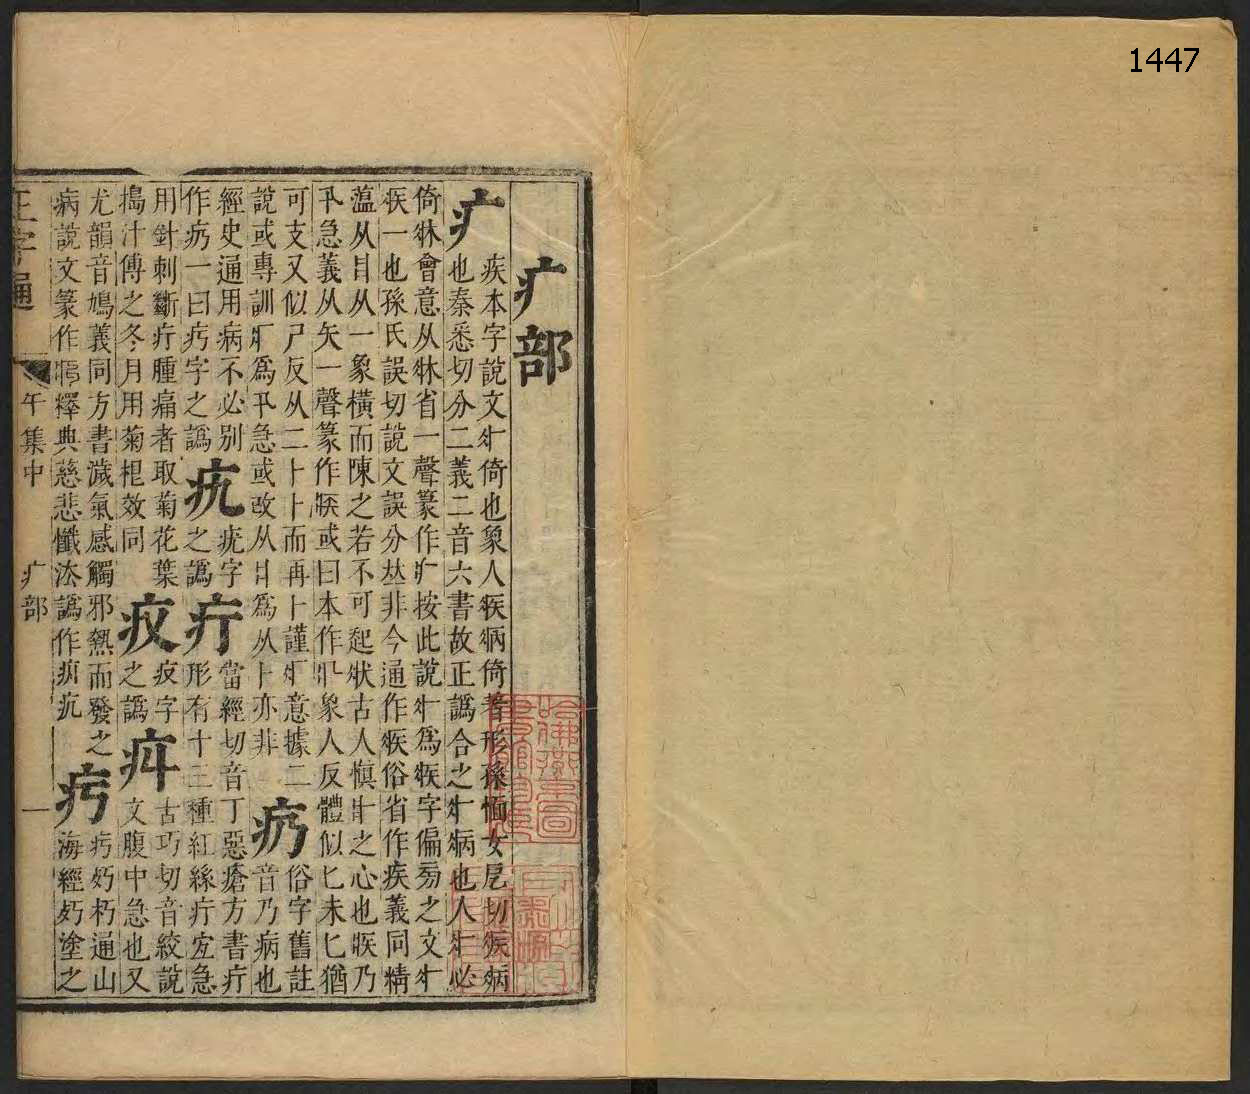 1447
疒部
疒
疾本字說文疒倚也象人疾病倚著形孫愐女戹切疾病
也秦悉切分二義二音六書故正譌合之疒病也人疒必
倚牀會意从牀省一聲篆作疒按此說疒為疾字偏旁之文疒
疾一也孫氏誤切說文誤分𠀤非今通作疾俗省作疾義同精
薀从爿从一象橫而陳之若不可起狀古人慎爿之心也疾乃
卂急義从矢一聲篆作疾或曰本作疒象人反體似匕未匕猶
可支又似尸反从二卜卜而再卜謹疒意據二
說或專訓疒為卂急或改从爿為从卜亦非
疓
俗字舊註
音乃病也
經史通用病不必別
作疓一曰疞字之譌
疘
疣字
之譌
疔
當經切音丁惡瘡方書疔
形有十三種紅絲疔宜急
用針刺斷疔腫痛者取菊花葉
搗汁傅之冬月用菊根效同
㽱
疢字
之譌
疛
古巧切音絞說
文腹中急也又
尤韻音鳩義同方書濊氣感觸邪熱而發之
病說文篆作釋典慈悲懺法譌作疝疘
疞
疞㱙朽通山
海經㱙塗之
正字通
午集中
疒部
一